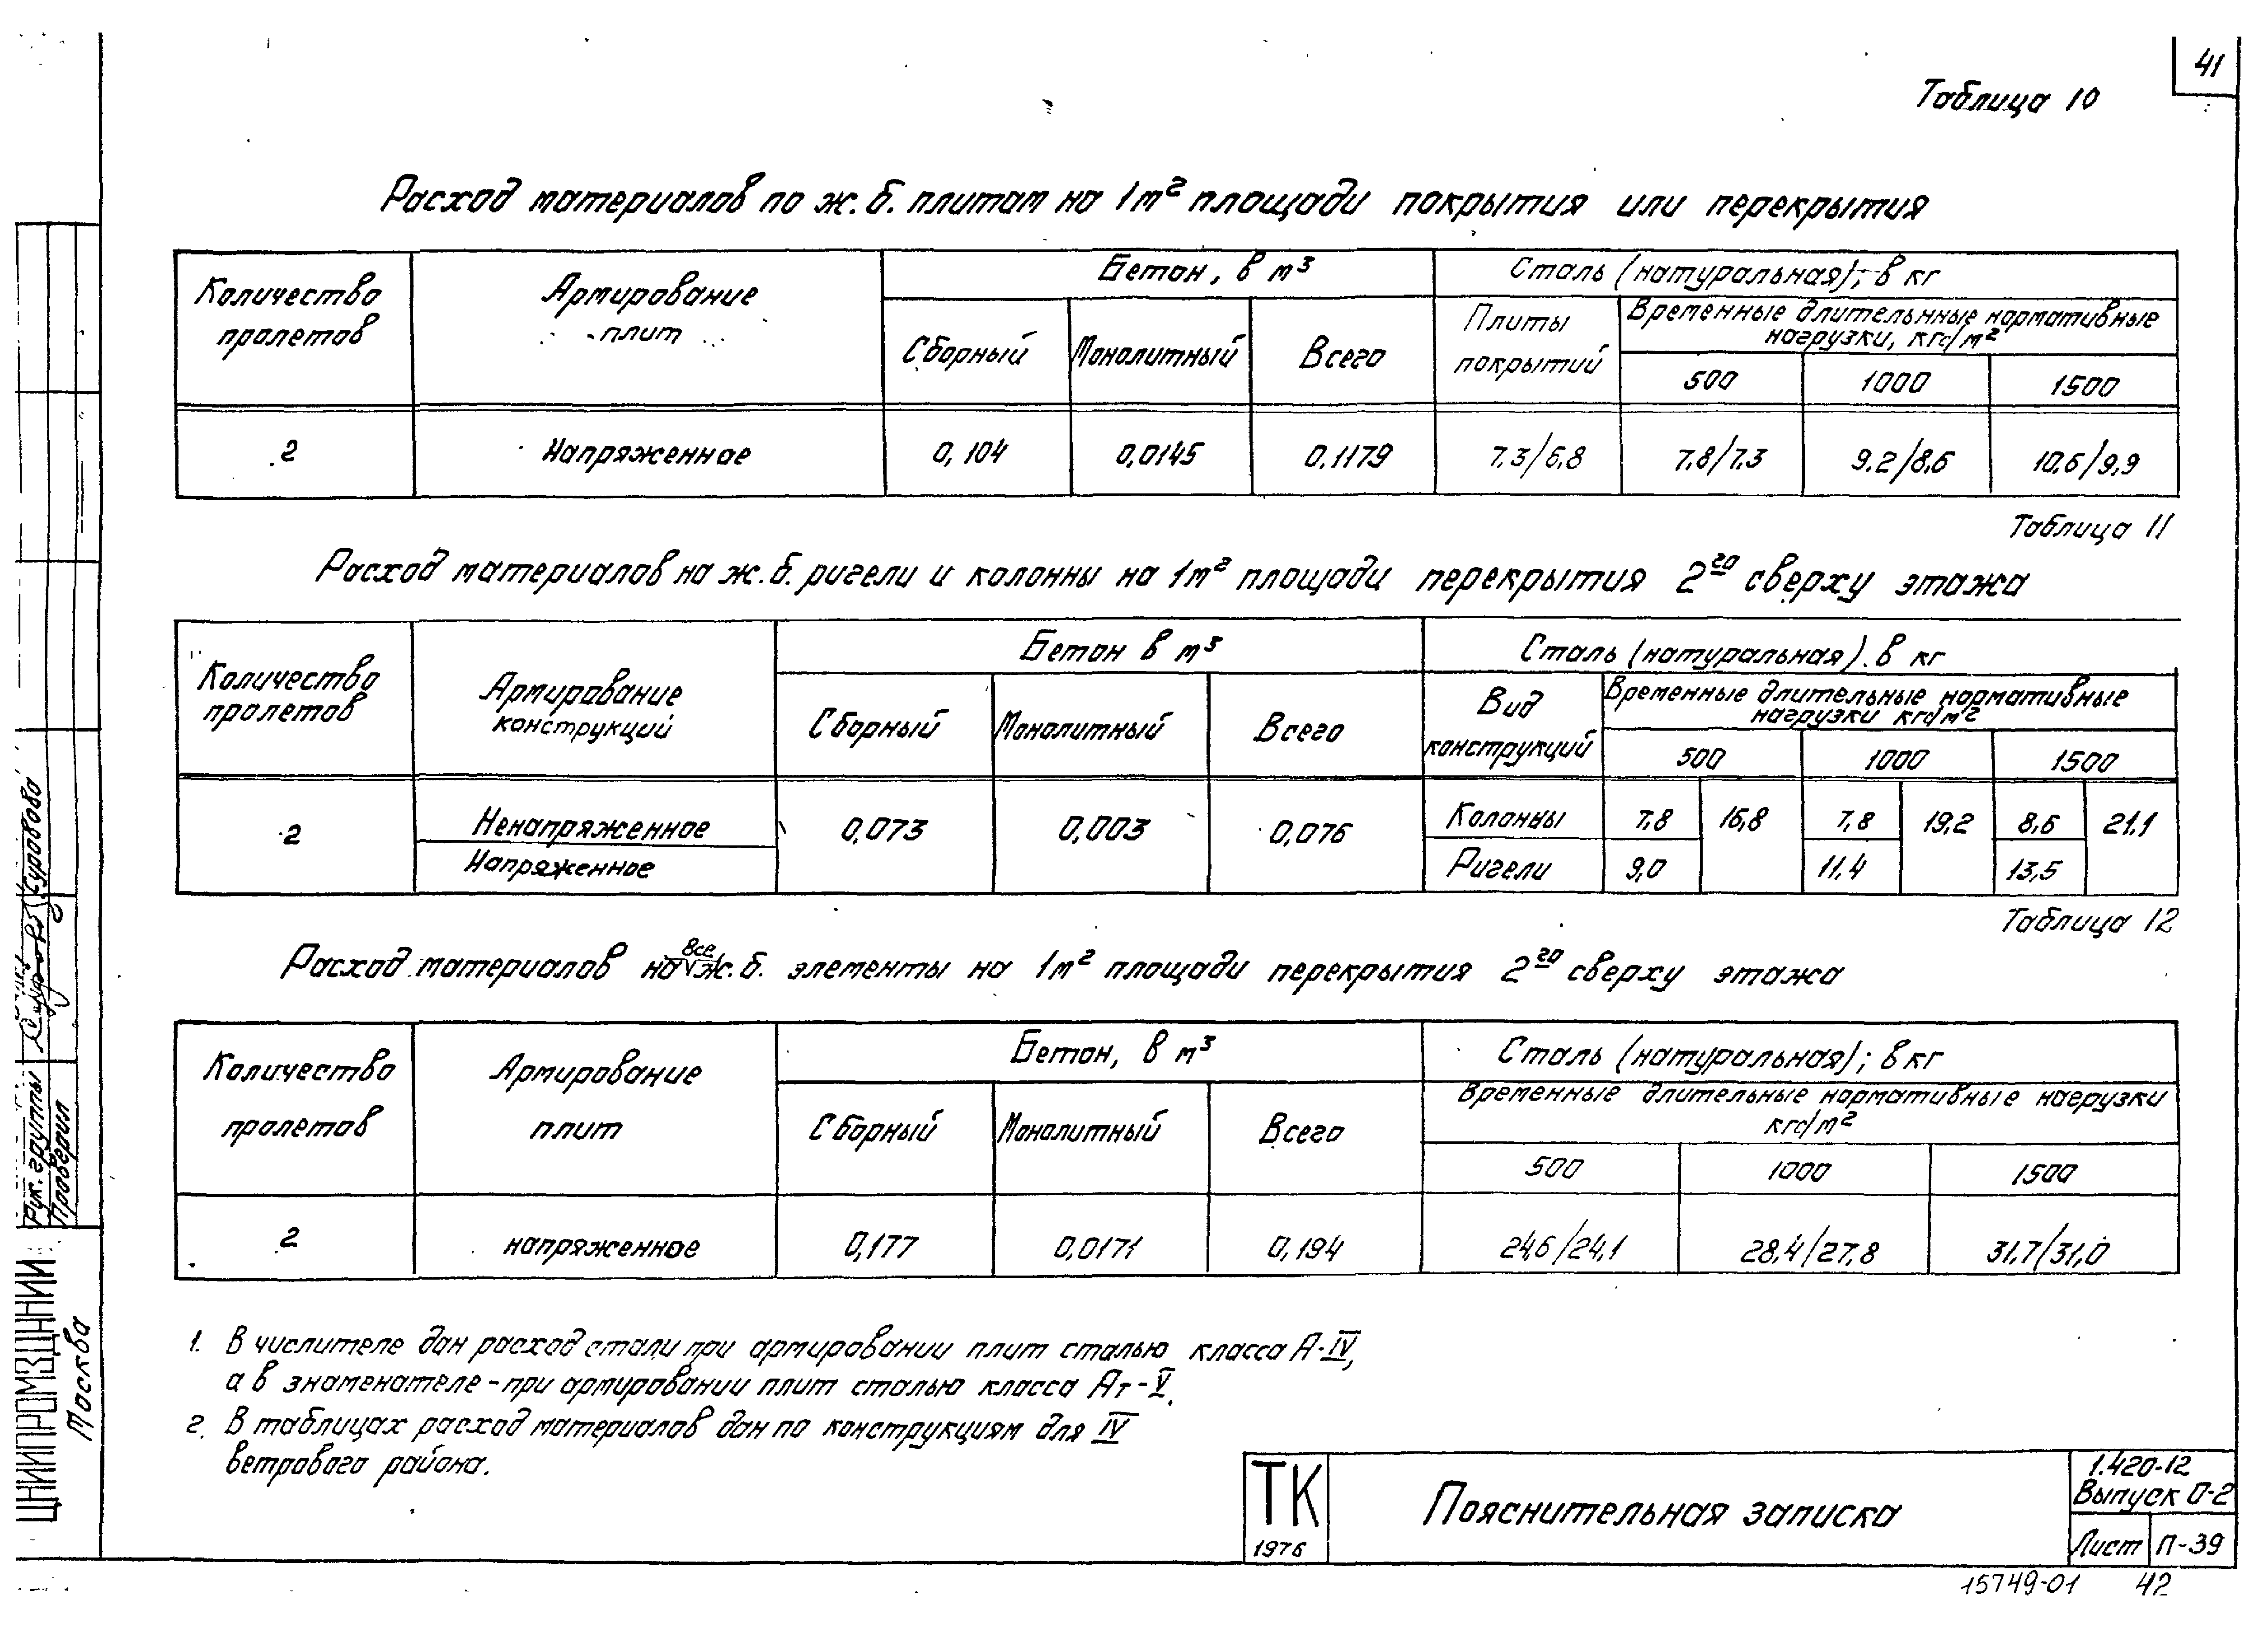 41
Таблица 10
Расход материалов по ж.б. плитам на 1м² площади покрытия или перекрытия
Количество пролетов
Армирование плит
Бетон, в м³
Сталь (натуральная); в кг
Сборный
Монолитный
Всего
Плиты покрытий
Временные длительнные нормативные нагрузки, кгс/м²
500
1000
1500
2
Напряженное
0,104
0,0145
0,1179
7,3/6,8
7,8/7,3
9,2/8,6
10,6/9,9
Таблица 11
Расход материалов на ж.б. ригели и колонны на 1м² площади перекрытия 2го сверху этажа
Количество пролетов
Армирование конструкций
Бетон в м³
Сталь (натуральная). в кг
Сборный
Монолитный
Всего
Вид конструкций
Временные длительные нормативные нагрузки кгс/м²
500
1000
1500
2
Ненапряженное
Напряженное
0,073
0,003
0,076
Колонны
7,8
16,8
7,8
19,2
8,6
21,1
Ригели
9,0
11,4
13,5
Таблица 12
Расход материалов на все ж.б. элементы на 1м² площади перекрытия 2го сверху этажа
Количество пролетов
Армирование плит
Бетон, в м³
Сталь (натуральная); в кг
Сборный
Монолитный
Всего
Временные длительные нормативные нагрузки кгс/м²
500
1000
1500
2
напряженное
0,177
0,0171
0,194
24,6/24,1
28,4/27,8
31,7/31,0
1. В числителе дан расход стали при армировании плит сталью класса А-IV,
а в знаменателе - при армировании плит сталью класса Ат-V.
2. В таблицах расход материалов дан по конструкциям для IV
ветрового района.
ТК
1976
Пояснительная записка
1.420-12
Выпуск 0-2
Лист П-39
15749-01 42
ЦНИИПРОМЗДАНИЙ
Москва
Рук. группы
Проверил